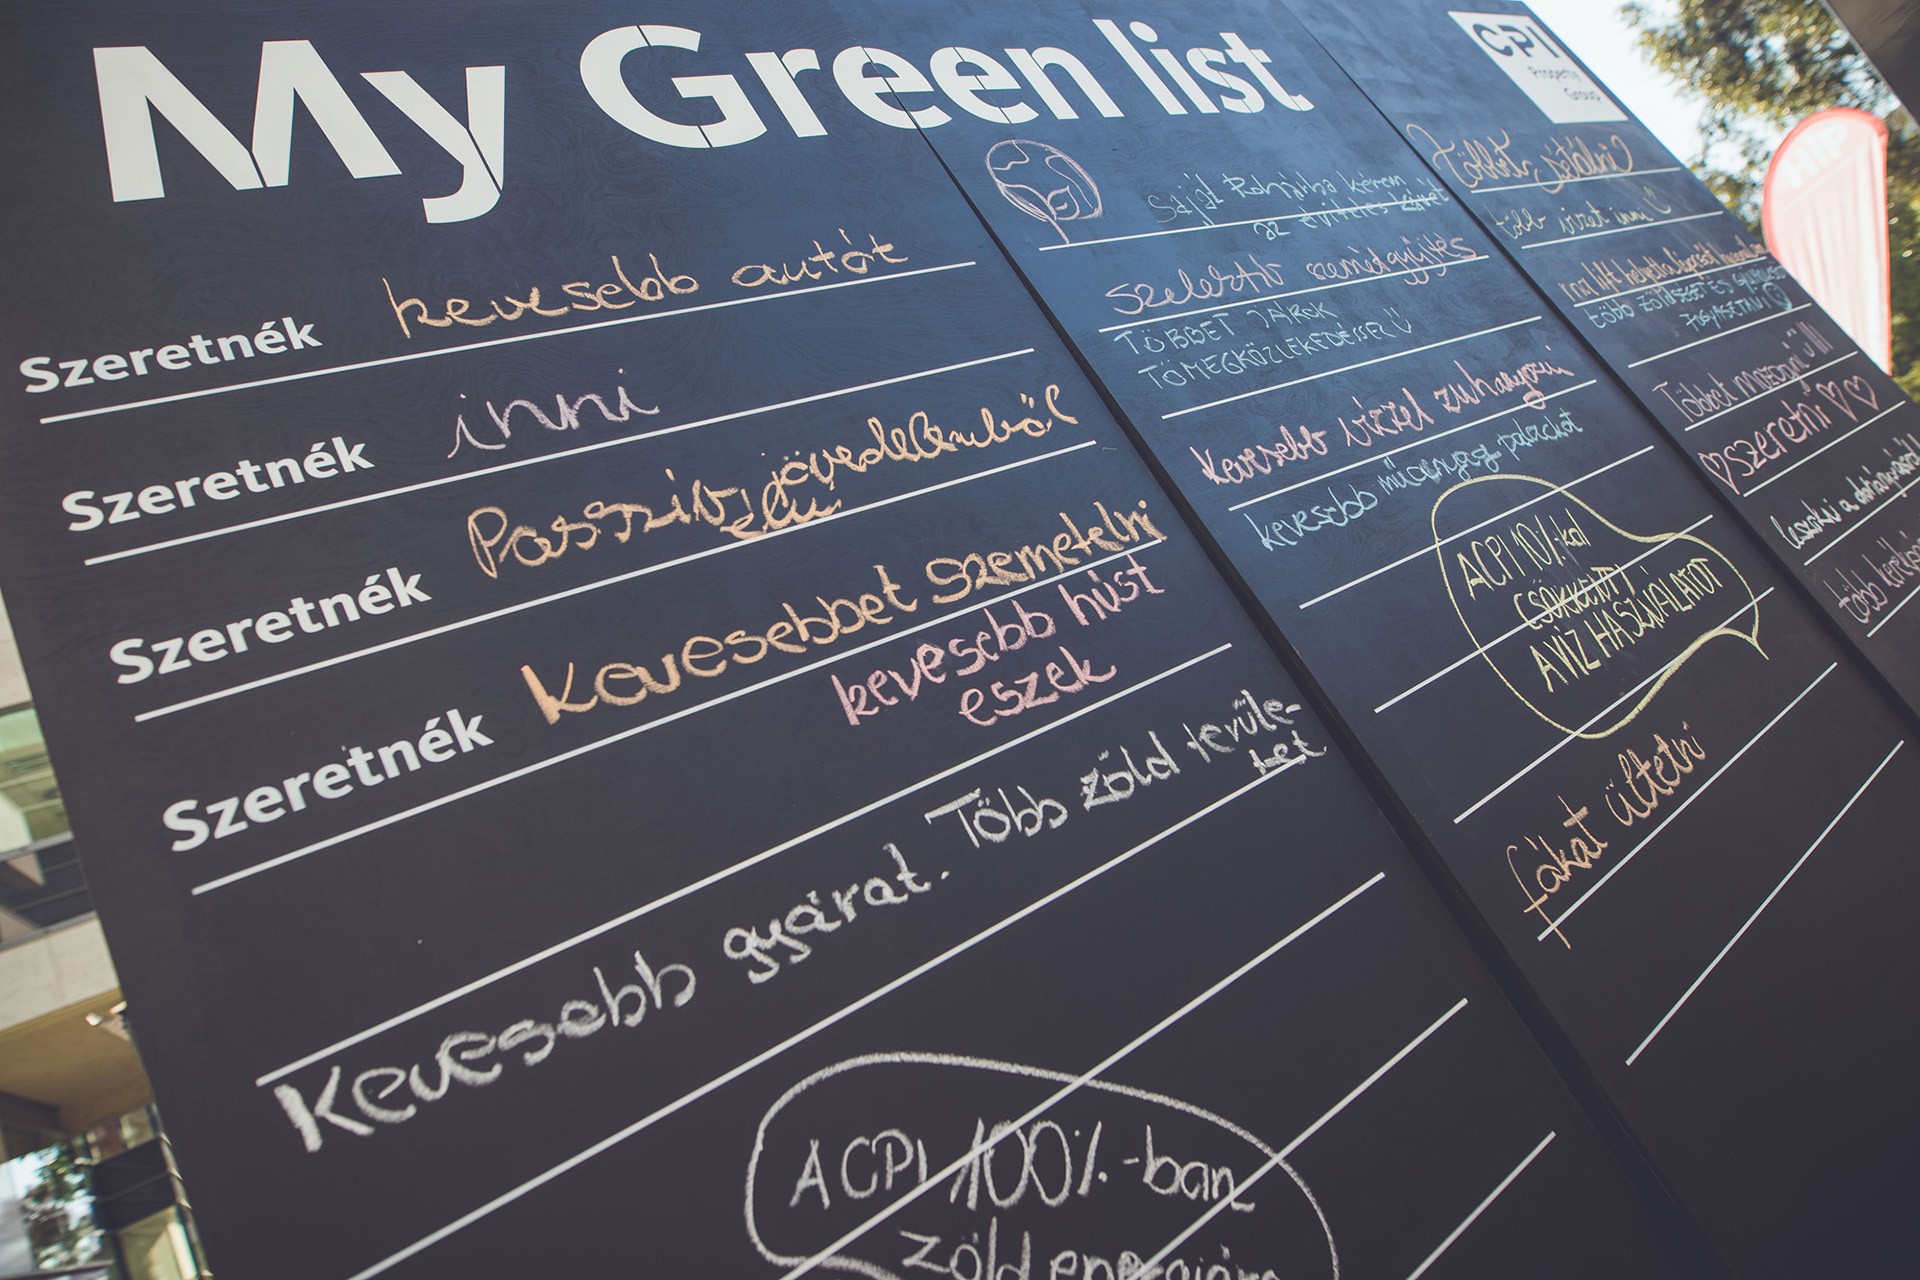 My Green list
CPI
Property
Group
Szeretnék kevesebb autót
Szeretnék inni
Szeretnék Passzív jövedelemből
élni
Szeretnék Kevesebbet szemetelni
kevesebb húst
eszek
Kevesebb gyárat. Több zöld terüle-
tet
A CPI 100%-ban
zöld energiára
Saját kérem
az elviteles
szelektív szemétgyűjtés
TÖBBET JÁROK
TÖMEGKÖZLEKEDÉSSEL
Kevesebb vízzel zuhanyozni
kevesebb műanyag palackot
A CPI 10%-kal
CSÖKKENTI
A VÍZ HASZNÁLATOT
fákat ültetni
többet sétálni
több vizet inni
lift helyett
több ZÖLDSÉGET ÉS
FOGYASZTANI
Többet mozogni!!!
szeretni
leszokni a dohányzásról
több
HiP